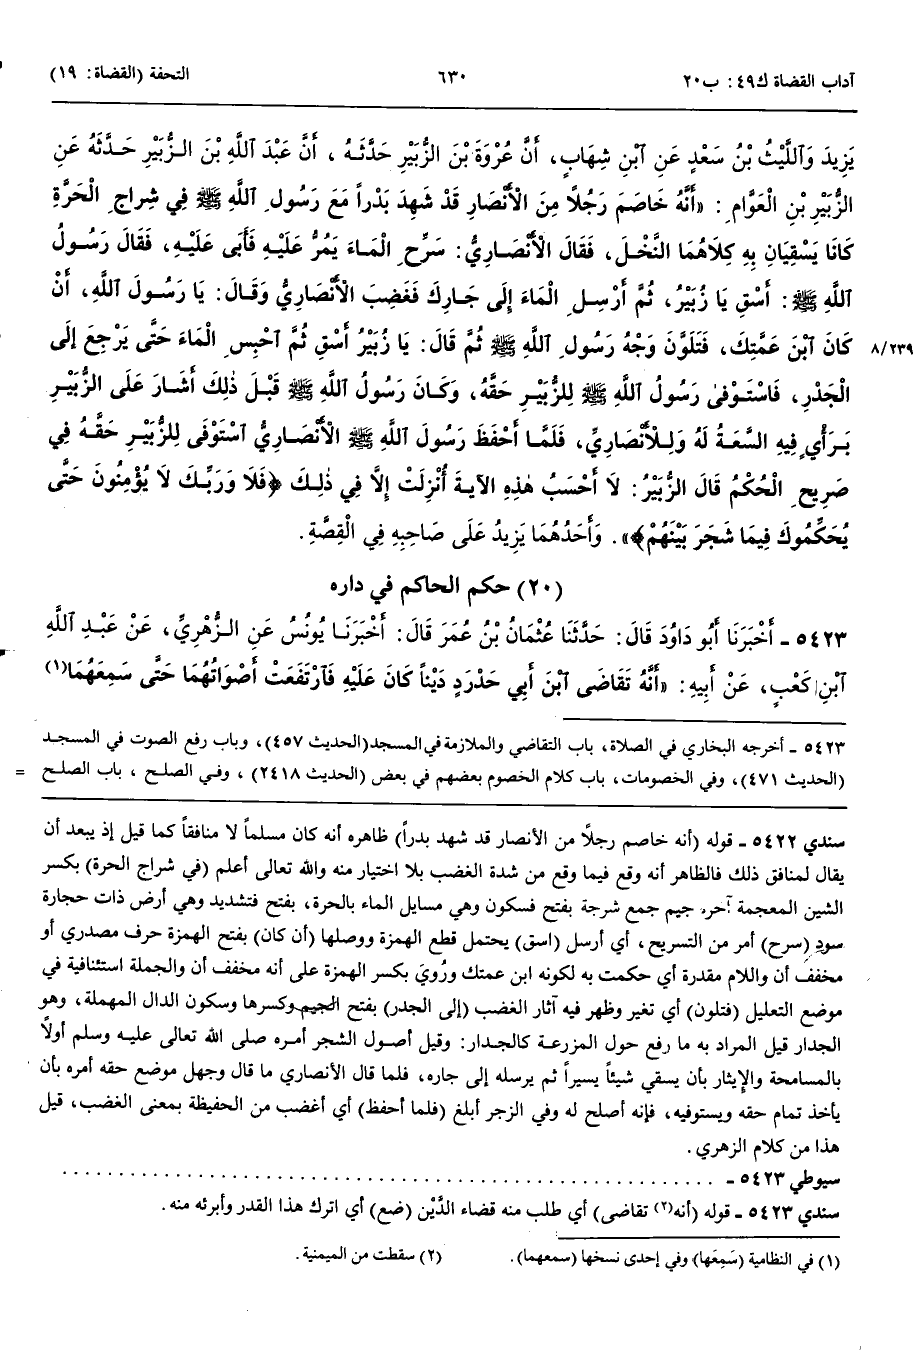 آداب القضاة ك٤٩: ب٢٠ ٦٣٠ التحفة (القضاة: ١٩)
يَزِيدَ وَٱللَّيْثُ بْنُ سَعْدٍ عَنِ ٱبْنِ شِهَابٍ، أَنَّ عُرْوَةَ بْنَ الزُّبَيْرِ حَدَّثَهُ، أَنَّ عَبْدَ ٱللَّهِ بْنَ الزُّبَيْرِ حَدَّثَهُ عَنِ
الزُّبَيْرِ بْنِ الْعَوَّامِ: «أَنَّهُ خَاصَمَ رَجُلاً مِنَ الْأَنْصَارِ قَدْ شَهِدَ بَدْراً مَعَ رَسُولِ ٱللَّهِ ﷺ فِي شِرَاجِ الْحَرَّةِ
كَانَا يَسْقِيَانِ بِهِ كِلَاهُمَا النَّخْلَ، فَقَالَ الْأَنْصَارِيُّ: سَرِّحِ الْمَاءَ يَمُرُّ عَلَيْهِ فَأَبَى عَلَيْهِ، فَقَالَ رَسُولُ
ٱللَّهِ ﷺ: أَسْقِ يَا زُبَيْرُ، ثُمَّ أَرْسِلِ الْمَاءَ إِلَى جَارِكَ فَغَضِبَ الْأَنْصَارِيُّ وَقَالَ: يَا رَسُولَ ٱللَّهِ، أَنْ
كَانَ ٱبْنَ عَمَّتِكَ، فَتَلَوَّنَ وَجْهُ رَسُولِ ٱللَّهِ ﷺ ثُمَّ قَالَ: يَا زُبَيْرُ أَسْقِ ثُمَّ ٱحْبِسِ الْمَاءَ حَتَّى يَرْجِعَ إِلَى ٨/٢٣٩
الْجَدْرِ، فَاسْتَوْفىٰ رَسُولُ ٱللَّهِ ﷺ لِلزُّبَيْرِ حَقَّهُ، وَكَانَ رَسُولُ ٱللَّهِ ﷺ قَبْلَ ذٰلِكَ أَشَارَ عَلَى الزُّبَيْرِ
بِرَأْيٍ فِيهِ السَّعَةُ لَهُ وَلِلْأَنْصَارِيِّ، فَلَمَّا أَحْفَظَ رَسُولَ ٱللَّهِ ﷺ الْأَنْصَارِيُّ ٱسْتَوْفَى لِلزُّبَيْرِ حَقَّهُ فِي
صَرِيحِ الْحُكْمِ قَالَ الزُّبَيْرُ: لَا أَحْسَبُ هٰذِهِ الآيَةَ أُنْزِلَتْ إِلَّا فِي ذٰلِكَ ﴿فَلَا وَرَبِّكَ لَا يُؤْمِنُونَ حَتَّى
يُحَكِّمُوكَ فِيمَا شَجَرَ بَيْنَهُمْ﴾». وَأَحَدُهُمَا يَزِيدُ عَلَى صَاحِبِهِ فِي الْقِصَّةِ.
(٢٠) حكم الحاكم في داره
٥٤٢٣ ـ أَخْبَرَنَا أَبُو دَاوُدَ قَالَ: حَدَّثَنَا عُثْمَانُ بْنُ عُمَرَ قَالَ: أَخْبَرَنَا يُونُسُ عَنِ الزُّهْرِيِّ، عَنْ عَبْدِ ٱللَّهِ
ٱبْنِ كَعْبٍ، عَنْ أَبِيهِ: «أَنَّهُ تَقَاضَى ٱبْنَ أَبِي حَدْرَدٍ دَيْناً كَانَ عَلَيْهِ فَٱرْتَفَعَتْ أَصْوَاتُهُمَا حَتَّى سَمِعَهُمَا(١)
٥٤٢٣ ـ أخرجه البخاري في الصلاة، باب التقاضي والملازمة في المسجد(الحديث ٤٥٧)، وباب رفع الصوت في المسجد
(الحديث ٤٧١)، وفي الخصومات، باب كلام الخصوم بعضهم في بعض (الحديث ٢٤١٨)، وفي الصلح، باب الصلح =
سندي ٥٤٢٢ ـ قوله (أنه خاصم رجلاً من الأنصار قد شهد بدراً) ظاهره أنه كان مسلماً لا منافقاً كما قيل إذ يبعد أن
يقال لمنافق ذلك فالظاهر أنه وقع فيما وقع من شدة الغضب بلا اختيار منه والله تعالى أعلم (في شراج الحرة) بكسر
الشين المعجمة آخره جيم جمع شرجة بفتح فسكون وهي مسايل الماء بالحرة، بفتح فتشديد وهي أرض ذات حجارة
سودٍ (سرح) أمر من التسريح، أي أرسل (اسق) يحتمل قطع الهمزة ووصلها (أن كان) بفتح الهمزة حرف مصدري أو
مخفف أن واللام مقدرة أي حكمت به لكونه ابن عمتك ورُويَ بكسر الهمزة على أنه مخفف أن والجملة استئنافية في
موضع التعليل (فتلون) أي تغير وظهر فيه آثار الغضب (إلى الجدر) بفتح الجيم وكسرها وسكون الدال المهملة، وهو
الجدار قيل المراد به ما رفع حول المزرعة كالجدار: وقيل أصول الشجر أمره صلى الله تعالى عليه وسلم أولاً
بالمسامحة والإيثار بأن يسقي شيئاً يسيراً ثم يرسله إلى جاره، فلما قال الأنصاري ما قال وجهل موضع حقه أمره بأن
يأخذ تمام حقه ويستوفيه، فإنه أصلح له وفي الزجر أبلغ (فلما أحفظ) أي أغضب من الحفيظة بمعنى الغضب، قيل
هذا من كلام الزهري.
سيوطي ٥٤٢٣ ـ . . . . . . . . . . . . . . . . . . . . . . . . . . . . . .
سندي ٥٤٢٣ ـ قوله (أنه(٢) تقاضى) أي طلب منه قضاء الدَّيْن (ضع) أي اترك هذا القدر وأبرئه منه.
(١) في النظامية (سَمِعَها) وفي إحدى نسخها (سمعهما). (٢) سقطت من الميمنية.